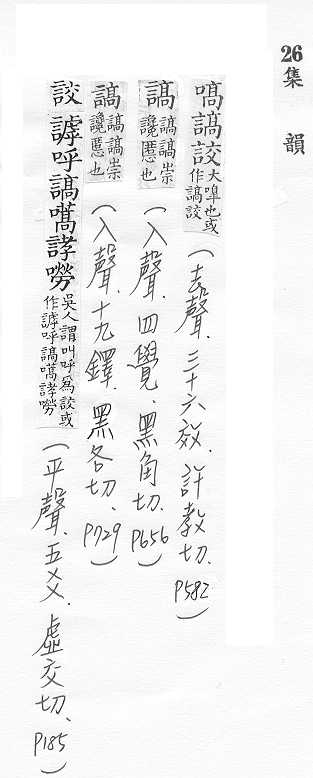 26
集韻
嗃謞詨 大嘷也或作謞詨 (去聲．三十六效．許教切．P582)
謞 謞謞崇讒慝也 (入聲．四覺．黑角切．P656)
謞 謞謞崇讒慝也 (入聲．十九鐸．黑各切．P729)
詨謼呼謞嚆誟嘮 吳人謂叫呼為詨或作謼呼謞嚆誟嘮 (平聲．五爻．虛交切．P185)